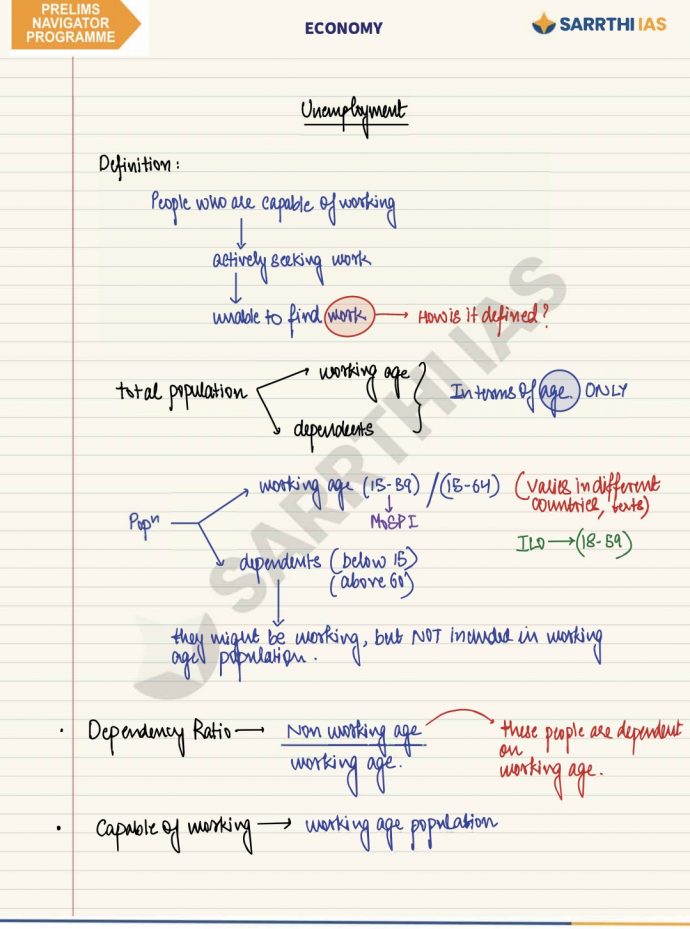 PRELIMS
NAVIGATOR
PROGRAMME
ECONOMY
SARRTHI IAS
Unemployment
Definition:
People who are capable of working
actively seeking work
unable to find work → How is it defined?
total population
working age
dependents
In terms of age ONLY
Popⁿ
working age (15-59) / (15-64) (varies in different
countries, texts)
MoSPI
ILO → (15-59)
dependents (below 15)
(above 60)
they might be working, but NOT included in working
age population.
• Dependency Ratio → Non working age
working age.
these people are dependent
on
working age.
• Capable of working → working age population
SARRTHI IAS